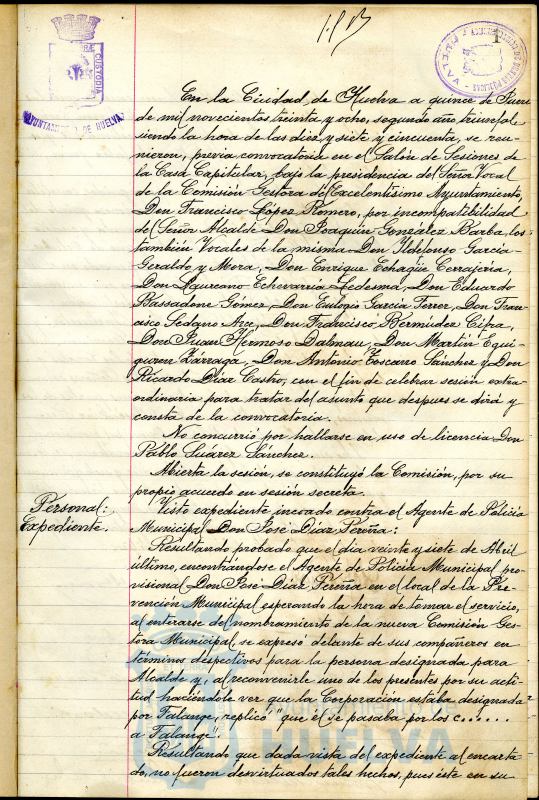 1.5 B
1
CUSTODIA
AYUNTAMIENTO DE HUELVA
HUELVA
En la Ciudad de Huelva a quince de
de mil novecientos treinta y ocho, segundo año triunfal,
siendo la hora de las diez y siete y cincuenta, se reu-
nieron, previa convocatoria en el Salón de Sesiones de
la Casa Capitular, bajo la presidencia del Señor Vocal
de la Comisión Gestora del Excelentísimo Ayuntamiento,
Don Francisco López Romero, por incompatibilidad
del Señor Alcalde Don Joaquín González Barba, los
también Vocales de la misma Don Ildefonso García
Geraldo y Mora, Don Enrique Echagüe Cerrajería,
Don Laureano Echevarria Ledesma, Don Eduardo
Bassadone Gómez, Don Eulogio García Ferrer, Don Fran-
cisco Sedano Arce, Don Francisco Bermúdez Cifra,
Don Juan Hermoso Dalmau, Don Martín Equi-
guren Larraga, Don Antonio Toscano Sánchez y Don
Ricardo Díaz Castro, con el fin de celebrar sesión extra-
ordinaria para tratar del asunto que después se dirá y
consta de la convocatoria.
No concurrió por hallarse en uso de licencia Don
Pablo Suárez Sánchez.
Abierta la sesión, se constituyó la Comisión, por su
propio acuerdo en sesión secreta.
Personal:
Expediente.
Visto expediente incoado contra el Agente de Policía
Municipal Don José Díaz Pereña:
Resultando probado que el día veinte y siete de Abril
último, encontrándose el Agente de Policía Municipal pro-
visional Don José Díaz Pereña en el local de la Pre-
vención Municipal esperando la hora de tomar el servicio,
al enterarse del nombramiento de la nueva Comisión Ges-
tora Municipal, se expresó delante de sus compañeros en
términos despectivos para la persona designada para
Alcalde y, al reconvenirle uno de los presentes por su acti-
tud, haciéndole ver que la Corporación estaba designada
por Falange, replicó "que él se pasaba por los c......
a Falange".
Resultando que dada vista del expediente al encarta-
do, no fueron desvirtuados tales hechos, pues éste en su
HUELVA